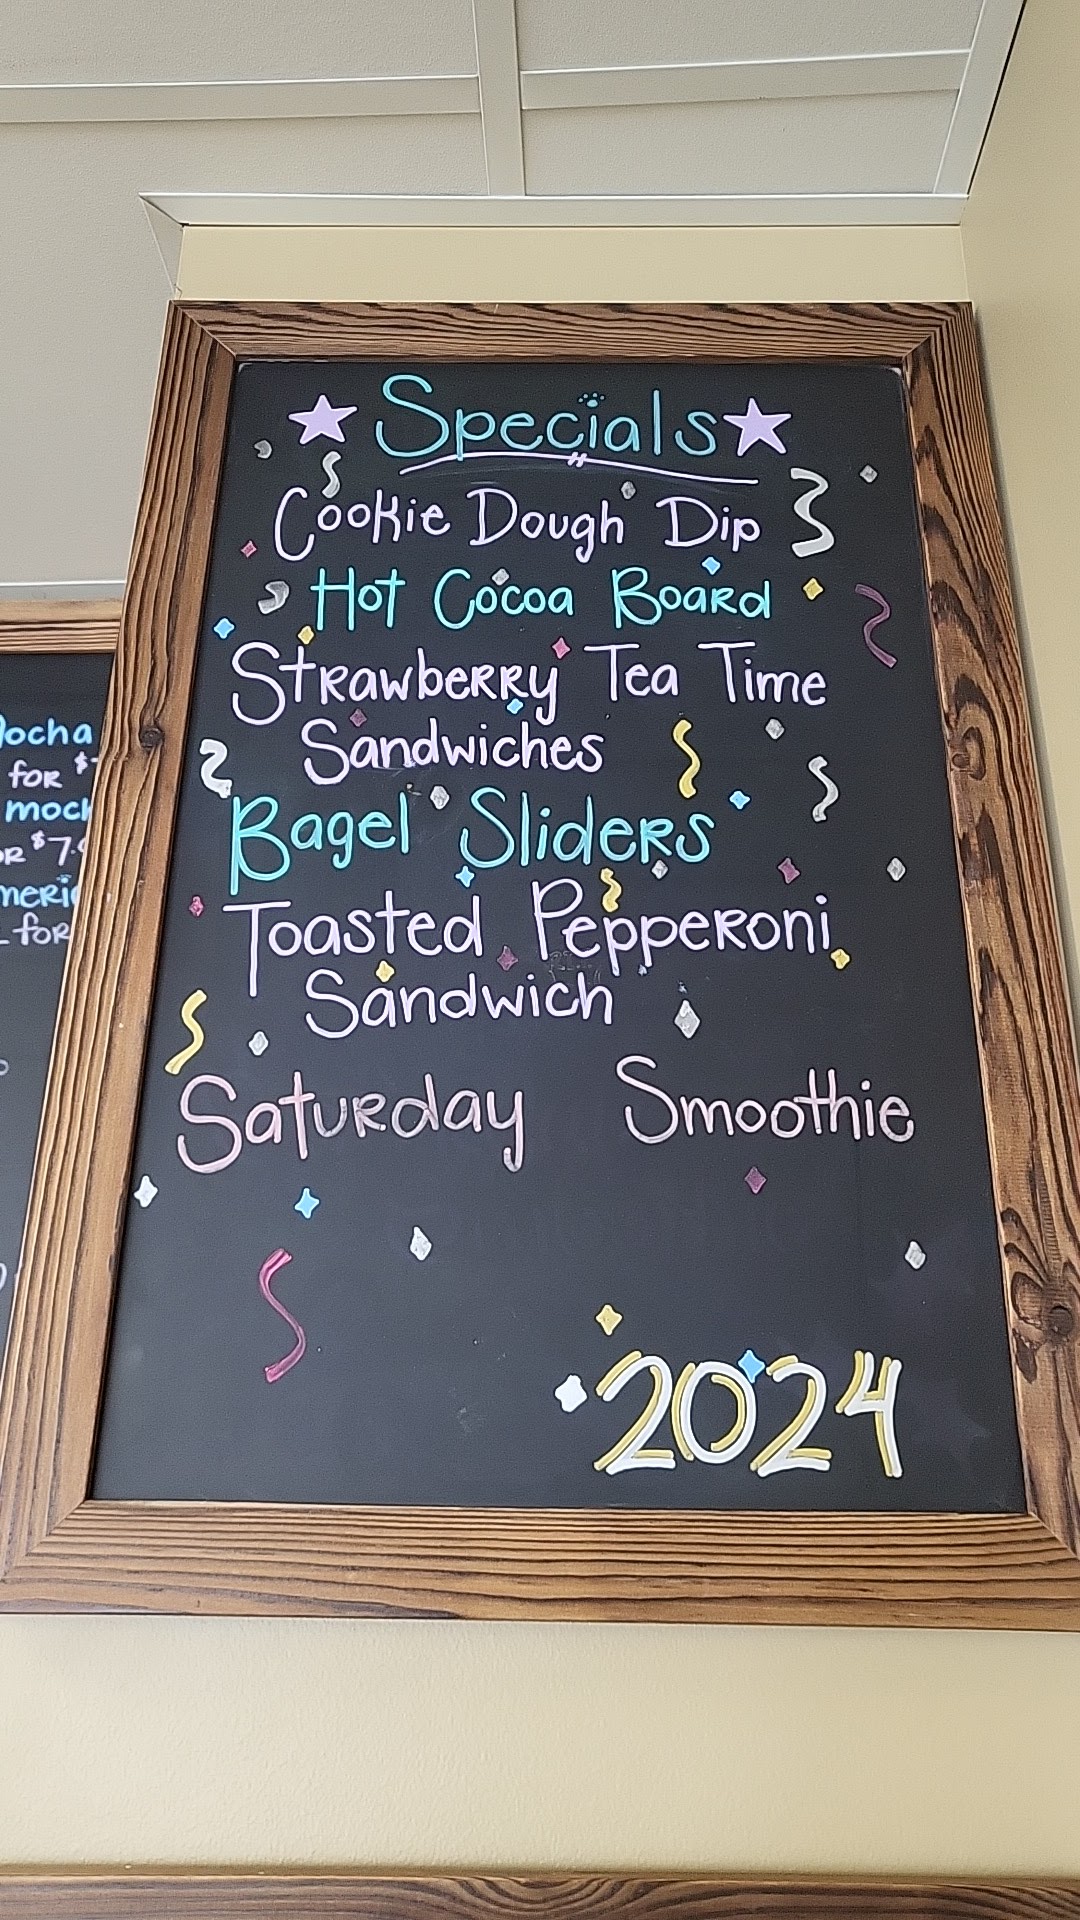 Specials
Cookie Dough Dip
Hot Cocoa Board
Strawberry Tea Time
Sandwiches
Bagel Sliders
Toasted Pepperoni
Sandwich
Saturday Smoothie
2024
for $
$7.
for